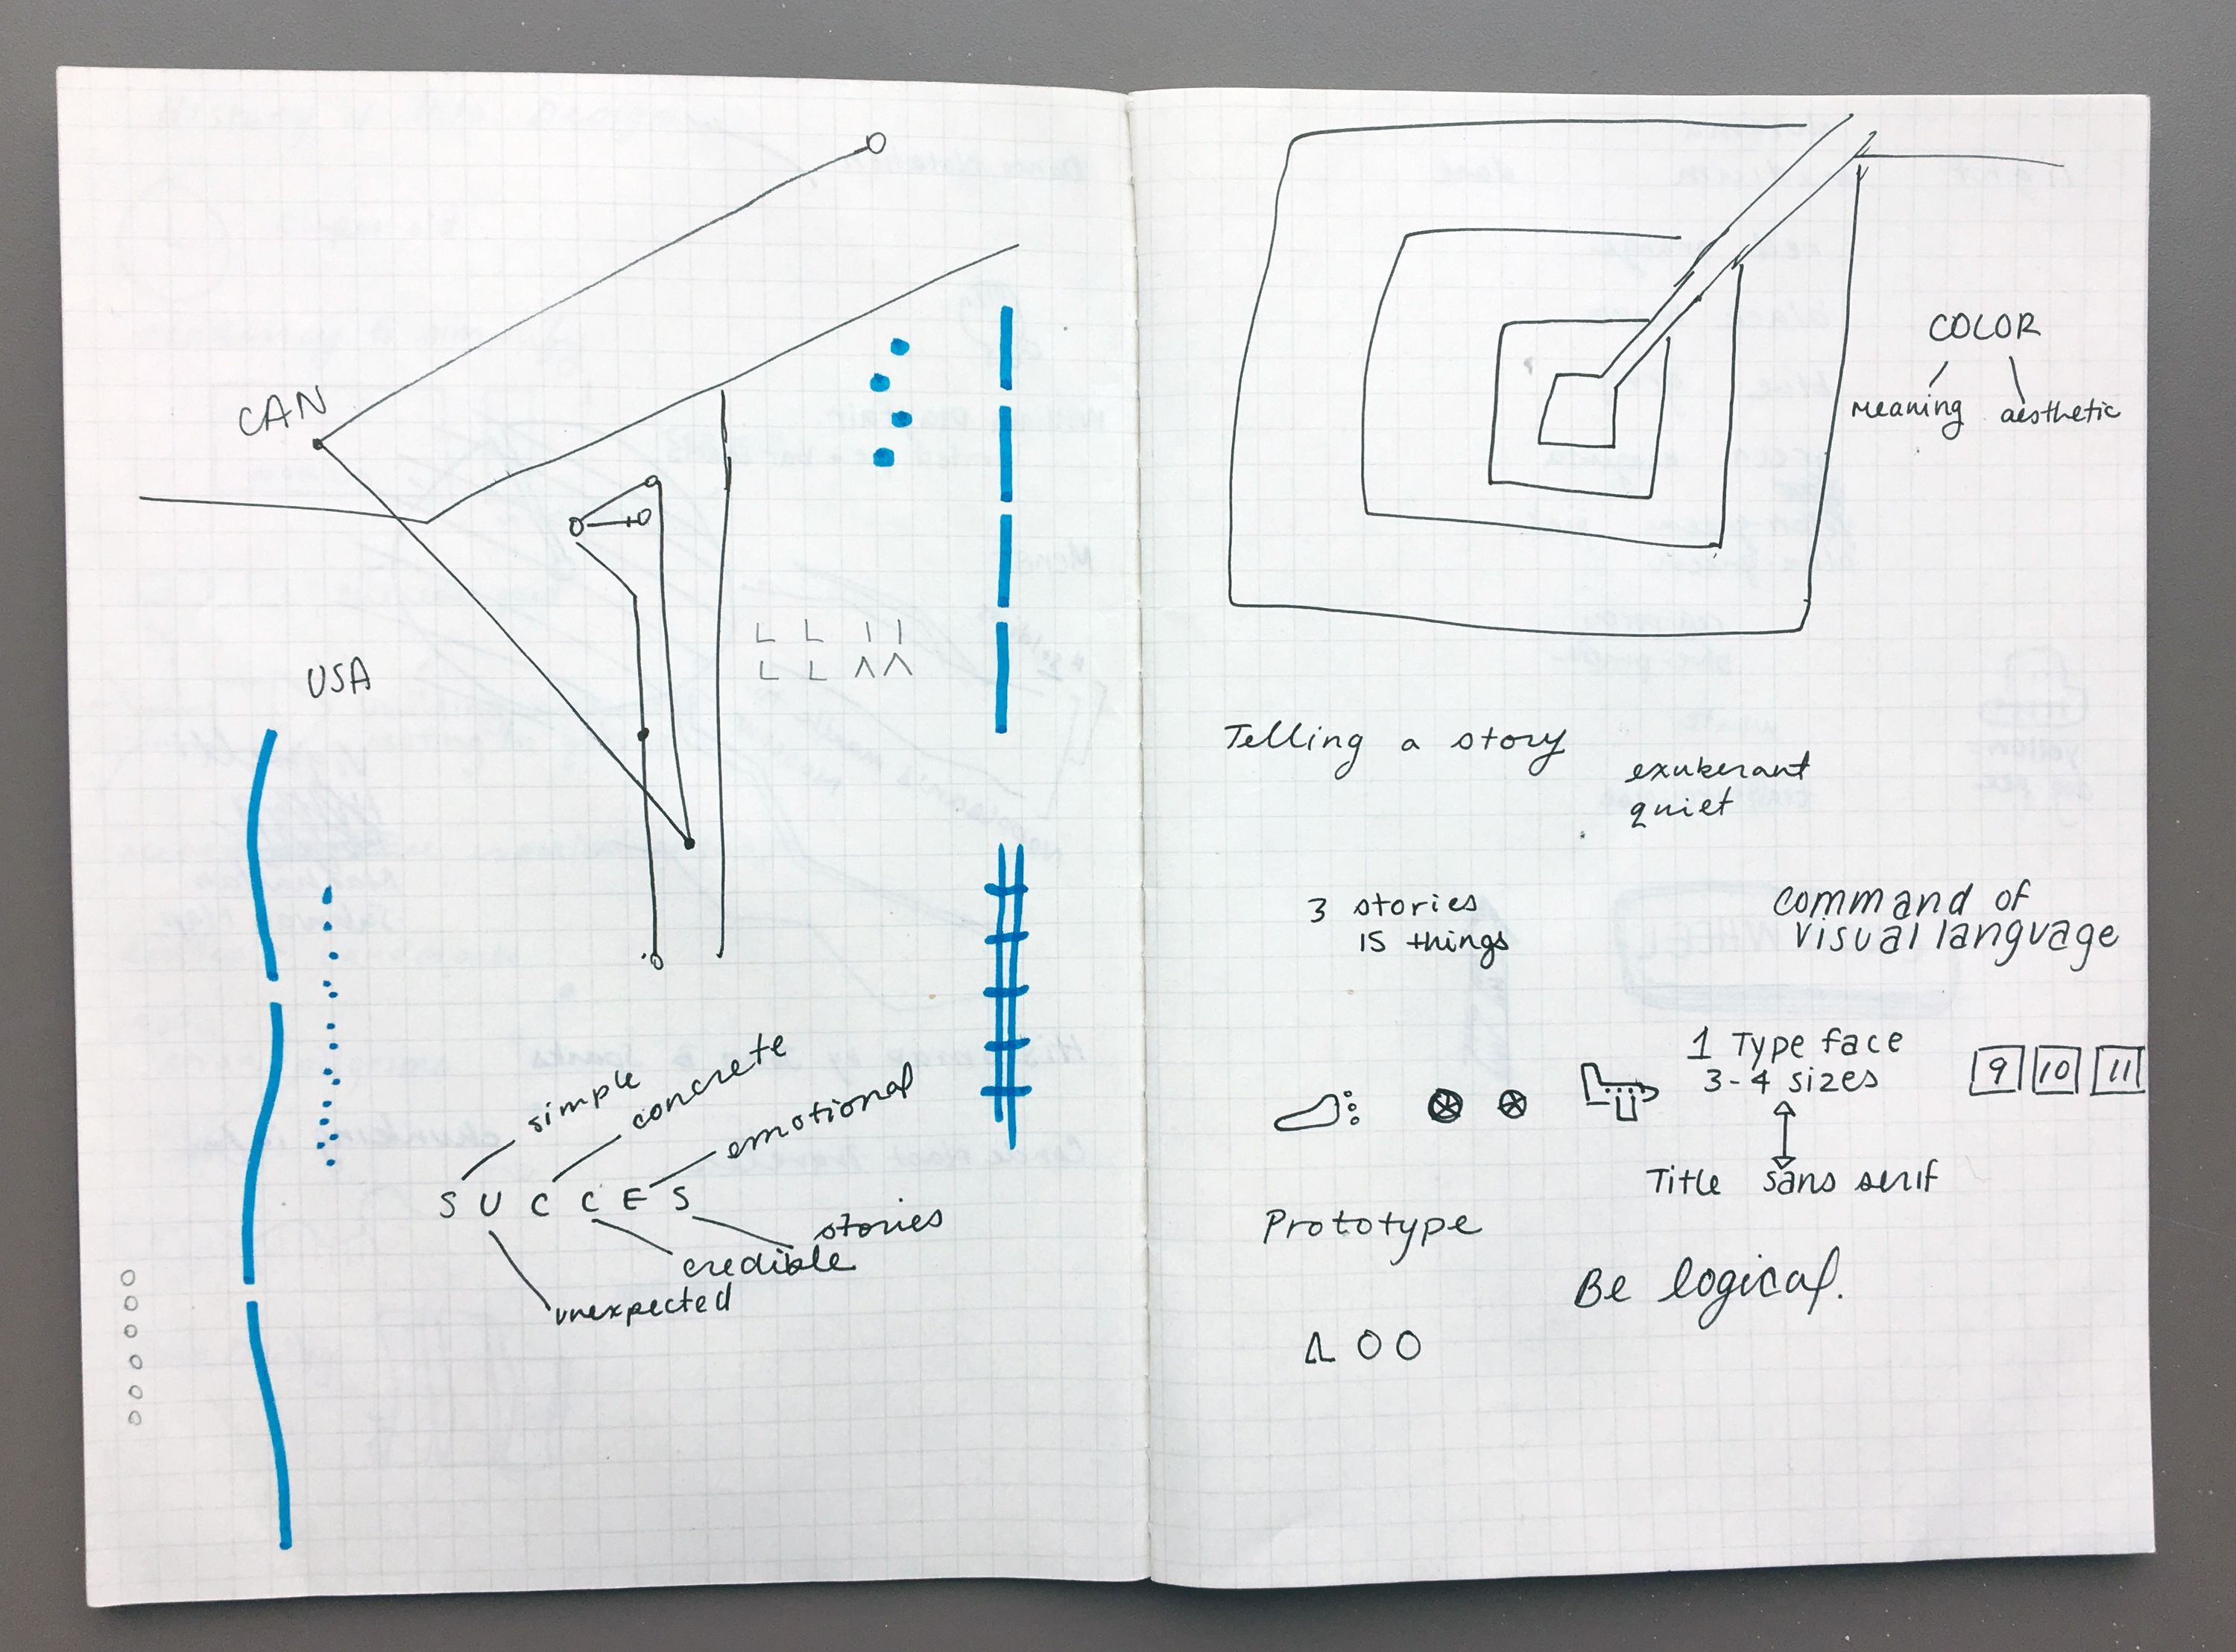 CAN
USA
simple
concrete
emotional
S U C C E S
stories
credible
unexpected
COLOR
meaning aesthetic
Telling a story
exuberant
quiet
3 stories
15 things
command of
visual language
1 Type face
3-4 sizes
9 10 11
Title sans serif
Prototype
Be logical.